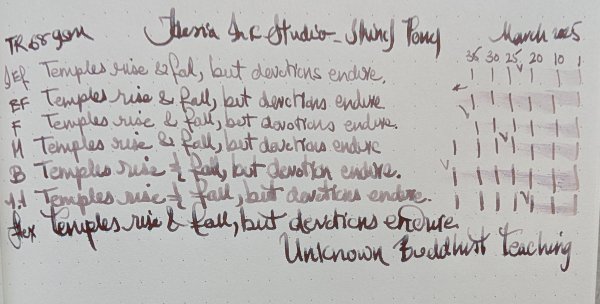 TR 68gsm Tesia Ink Studio - Shinji Pony March 2025
35 30 25 20 10 1
EF Temples rise & fall, but devotions endure.
BF Temples rise & fall, but devotions endure
F Temples rise & fall, but devotions endure.
M Temples rise & fall, but devotions endure
B Temples rise & fall, but devotion endure.
1.1 Temples rise & fall, but devotions endure.
flex Temples rise & fall, but devotions endure.
Unknown Buddhist teaching